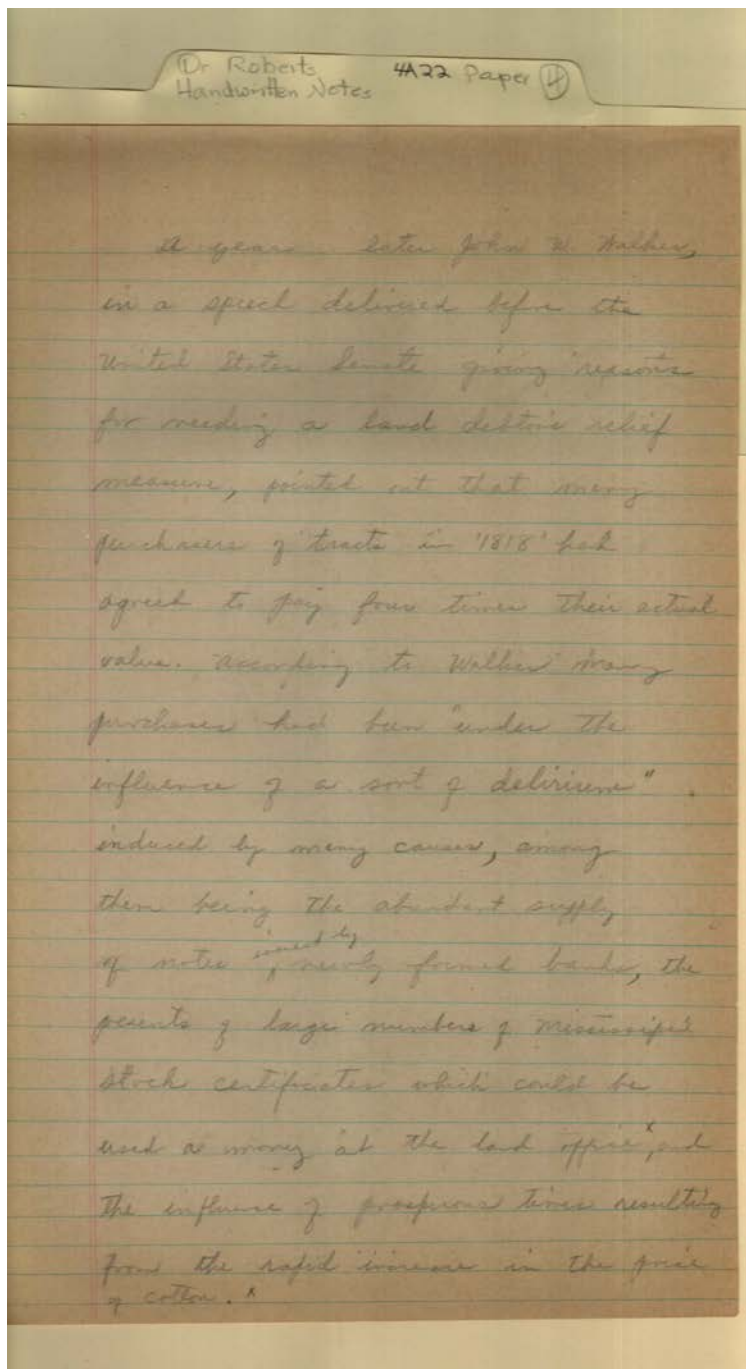 Dr Roberts 4A22 Paper 4
Handwritten Notes
A years later John W. Walker,
in a speech delivered before the
United States Senate giving reasons
for needing a land debtors relief
measure, pointed out that many
purchasers of tracts in '1818' had
agreed to pay four times their actual
value. According to Walker many
purchases had been "under the
influence of a sort of delirium".
induced by many causes, among
them being the abundant supply
of notes issued by newly formed banks, the
presents of large numbers of Mississippi
stock certificates which could be
used as money at the land office x, and
the influence of prosperous times resulting
from the rapid increase in the price
of cotton. x